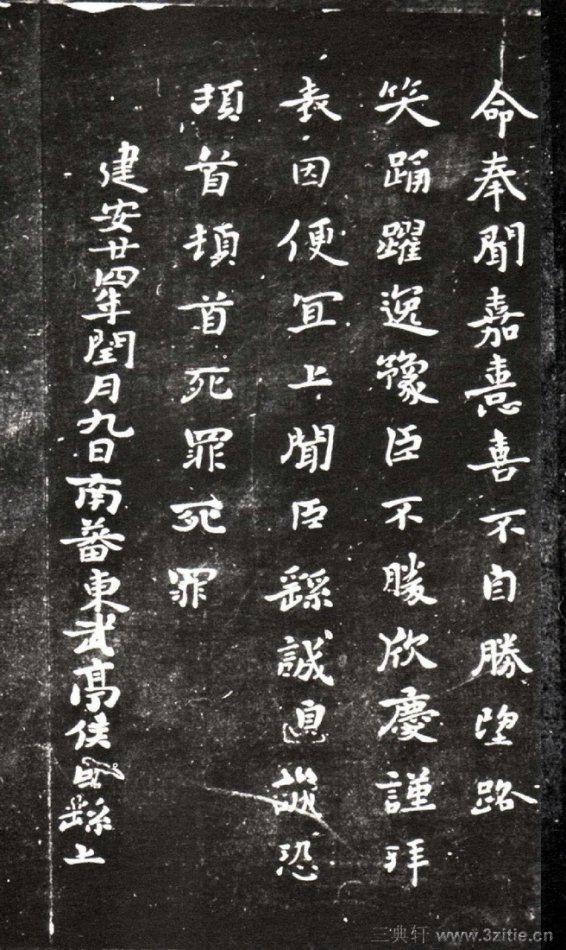 命奉聞嘉憙喜不自勝望路
笑踊躍逸豫臣不勝欣慶謹拜
表因便宜上聞臣繇誠惶誠恐
頓首頓首死罪死罪
建安廿四年閏月九日南蕃東武亭侯臣繇上
三典轩 www.3zitie.cn